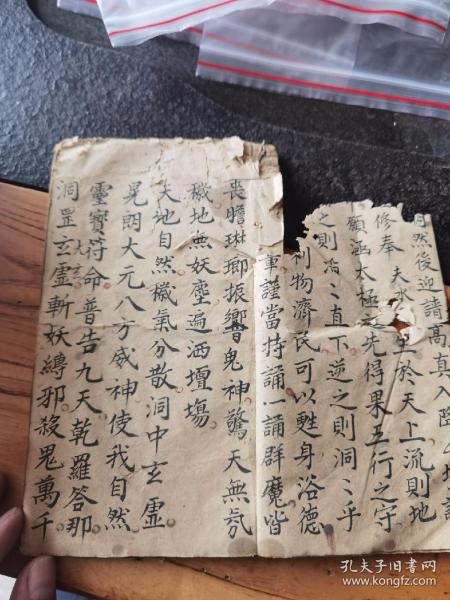 然後迎請高真入降
修奉 夫水 至於天上流則地
願涵太極 先得果五行之守
之則浩〻直下逆之則洞〻乎
利物濟民可以甦身浴德
軍謹當持誦一誦群魔皆
喪膽琳瑯振響鬼神驚天無氛
穢地無妖塵遍洒壇場
天地自然穢氣分散洞中玄虛
晃朗大元八方威神使我自然
靈寶符命普告九天乾羅答那
洞罡大玄玄虛斬妖縛邪殺鬼萬千
孔夫子旧书网
www.kongfz.com